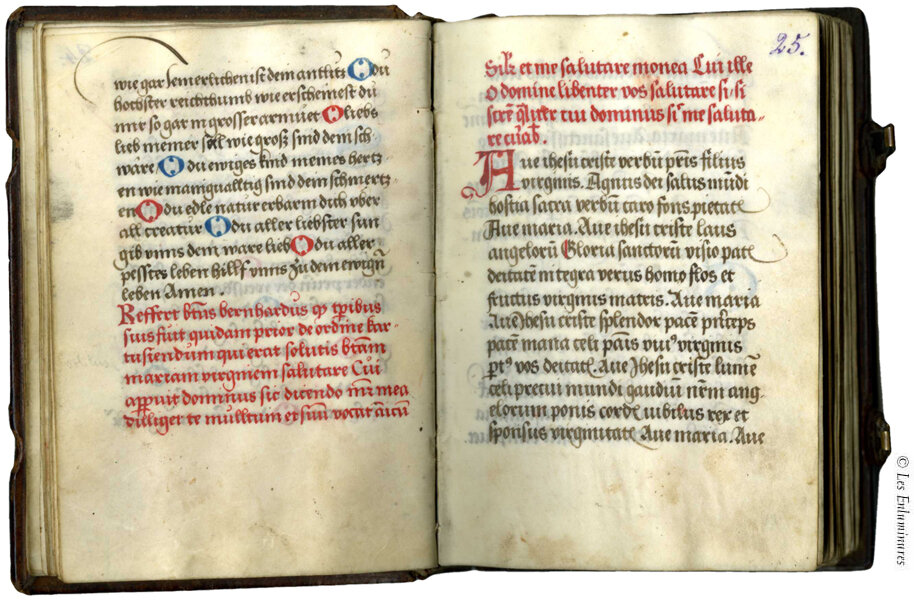 wie gar iemerlichen ist dem antlütz O du
hochster reichthumb wie erscheinest du
mir so gar in grosser armuet O liebs
lieb meiner sell wie groß sind dein sch
wäre O du ewiges kind meines hertz-
en wie maniqualltig sind dein schmertz-
en O du edle natur erbarm dich vber
all creatur O du aller liebster sun
gib vnns dem ware lieb O du aller
pesstes leben hillf vnns zu dem ewign
leben Amen
Reffert btūs bernhardūs qp tpībus
suis fuit quidam prior de ordine kar-
tusiendum qui erat solutis btam
mariam virginem salutare Cui
appuit dominus sic dicendo mr mea
diliget te mulltum et suū vocat
25.
et me salutare monea Cui ille
O domine libenter vos salutare si si
tui dominus me saluta-
re
Aue ihesu criste verbū pris filius
virginis. Agnus dei salus mūdi
hostia sacra verbū caro fons pietate
Aue maria. Aue ihesu criste laus
angelorū Gloria sanctorū visio pate
deitate integra verus homo flos et
fructus virginis matris. Aue maria
Aue Ihesu criste splendor pacē princeps
pacē mana celi panis virginis
vos deitate Aue Ihesu criste lumē
celi preciū mundi gaudiū nrm ang-
elorum ponis cord iubilus rex et
sponsus virginitate Aue maria. Aue
© Les Enluminures